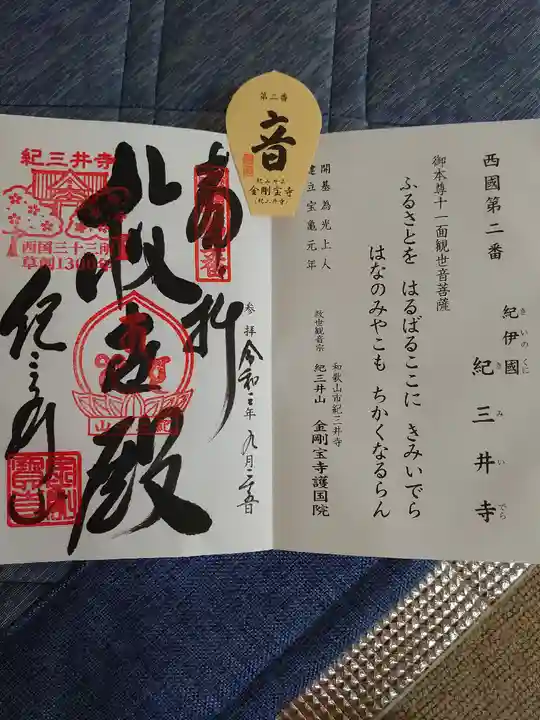 西國第二番
紀伊國
きいのくに
紀三井寺
きみいでら
御本尊十一面観世音菩薩
ふるさとを はるばるここに きみいでら
はなのみやこも ちかくなるらん
和歌山市紀三井寺
救世観音宗 紀三井山 金剛宝寺護国院
開基為光上人
建立宝亀元年
第二番
音
紀三井山
金剛宝寺
(紀三井寺)
奉拝
参拝 令和二年 九月二五日
救世殿
紀三井寺
紀三井寺
西国三十三所
草創1300年